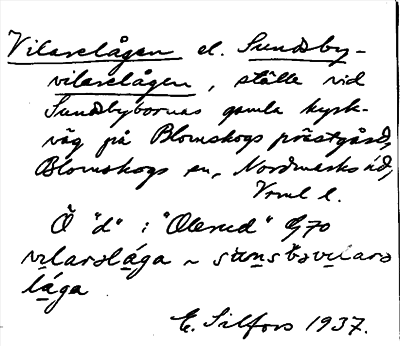 Vilarelågen el. Sundsby-
vilarelågen, ställe vid
Sundsbybornas gamla kyrk-
väg på Blomskogs prästgård,
Blomskogs sn, Nordmarks hd,
Vrml l.
Ö "d" i "Olerud"
vilarəlåga ~
låga
E. Silfors 1937.